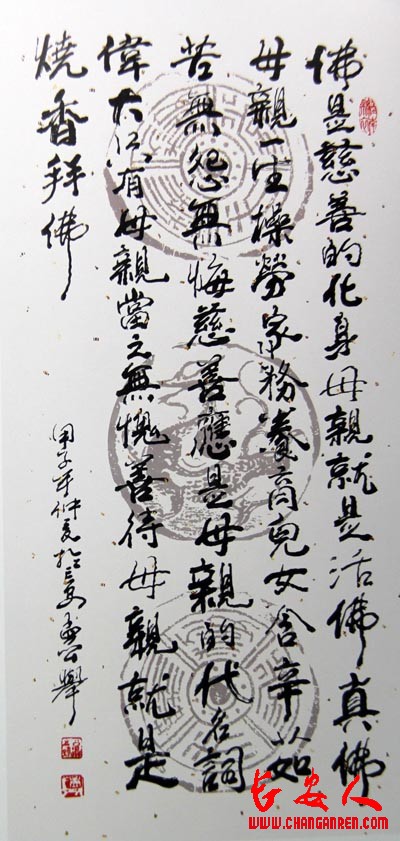 佛是慈善的化身母親就是活佛真佛
母親一生操勞家務養育兒女含辛茹
苦無怨無悔慈善應是母親的代名詞
偉大只有母親當之無愧善待母親就是
燒香拜佛
甲子年仲夏於長安
长安人
WWW.CHANGANREN.COM